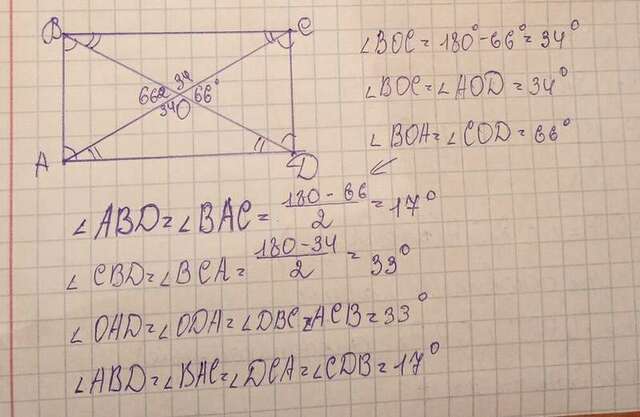 B C
34
66° 66°
34 O
A D
∠BOC = 180° - 66° = 34°
∠BOC = ∠AOD = 34°
∠BOA = ∠COD = 66°
∠ABD = ∠BAC = (180 - 66)/2 = 17°
∠CBD = ∠BCA = (180 - 34)/2 = 33°
∠OAD = ∠ODA = ∠DBC = ACB = 33°
∠ABD = ∠BAC = ∠DCA = ∠CDB = 17°